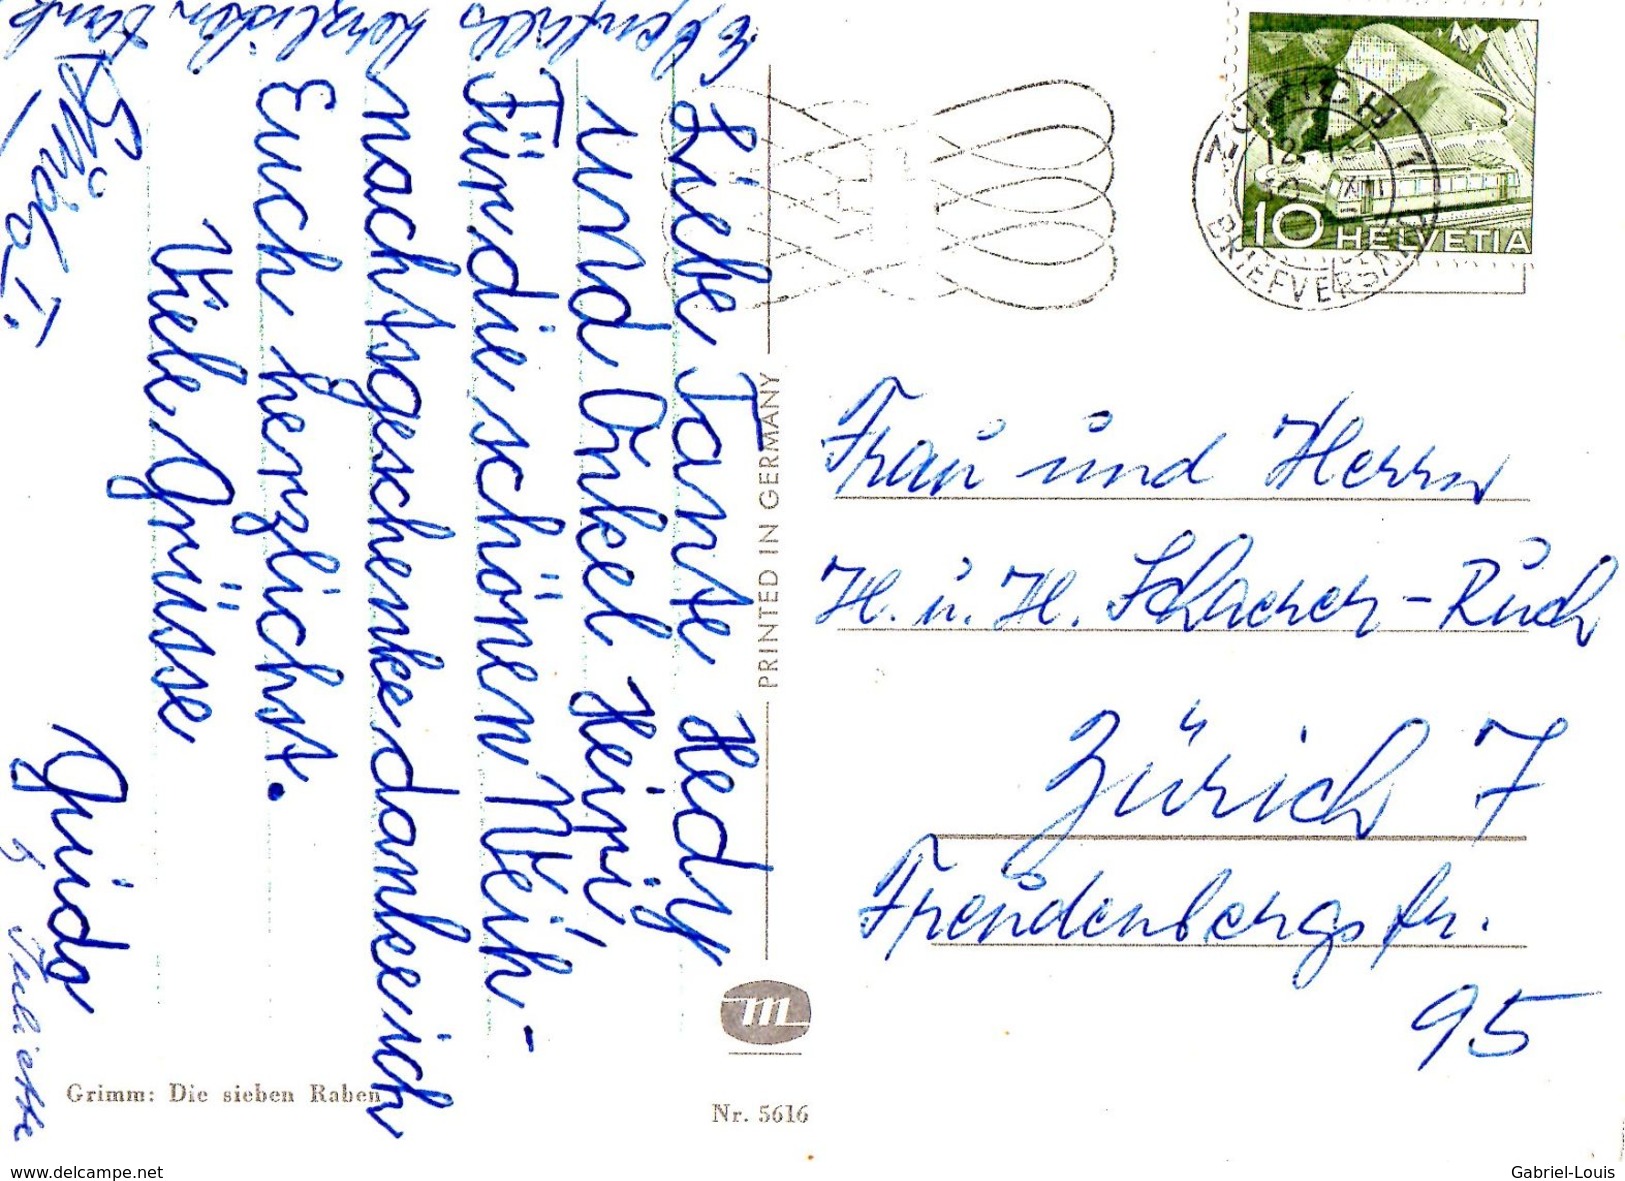 Liebe Tante Hedy
und Onkel Heiri
Für die schönen Weih-
nachtsgeschenke danke ich
Euch herzlichst.
Viele Grüsse
Guido
Juliette
Ebenfalls herzlichen Dank
PRINTED IN GERMANY
Grimm: Die sieben Raben
Nr. 5616
m
10 HELVETIA
BRIEFVERSAND
Frau und Herrn
H. u. H. Schacher-Ruch
Zürich 7
Freudenbergstr.
95
www.delcampe.net
Gabriel-Louis